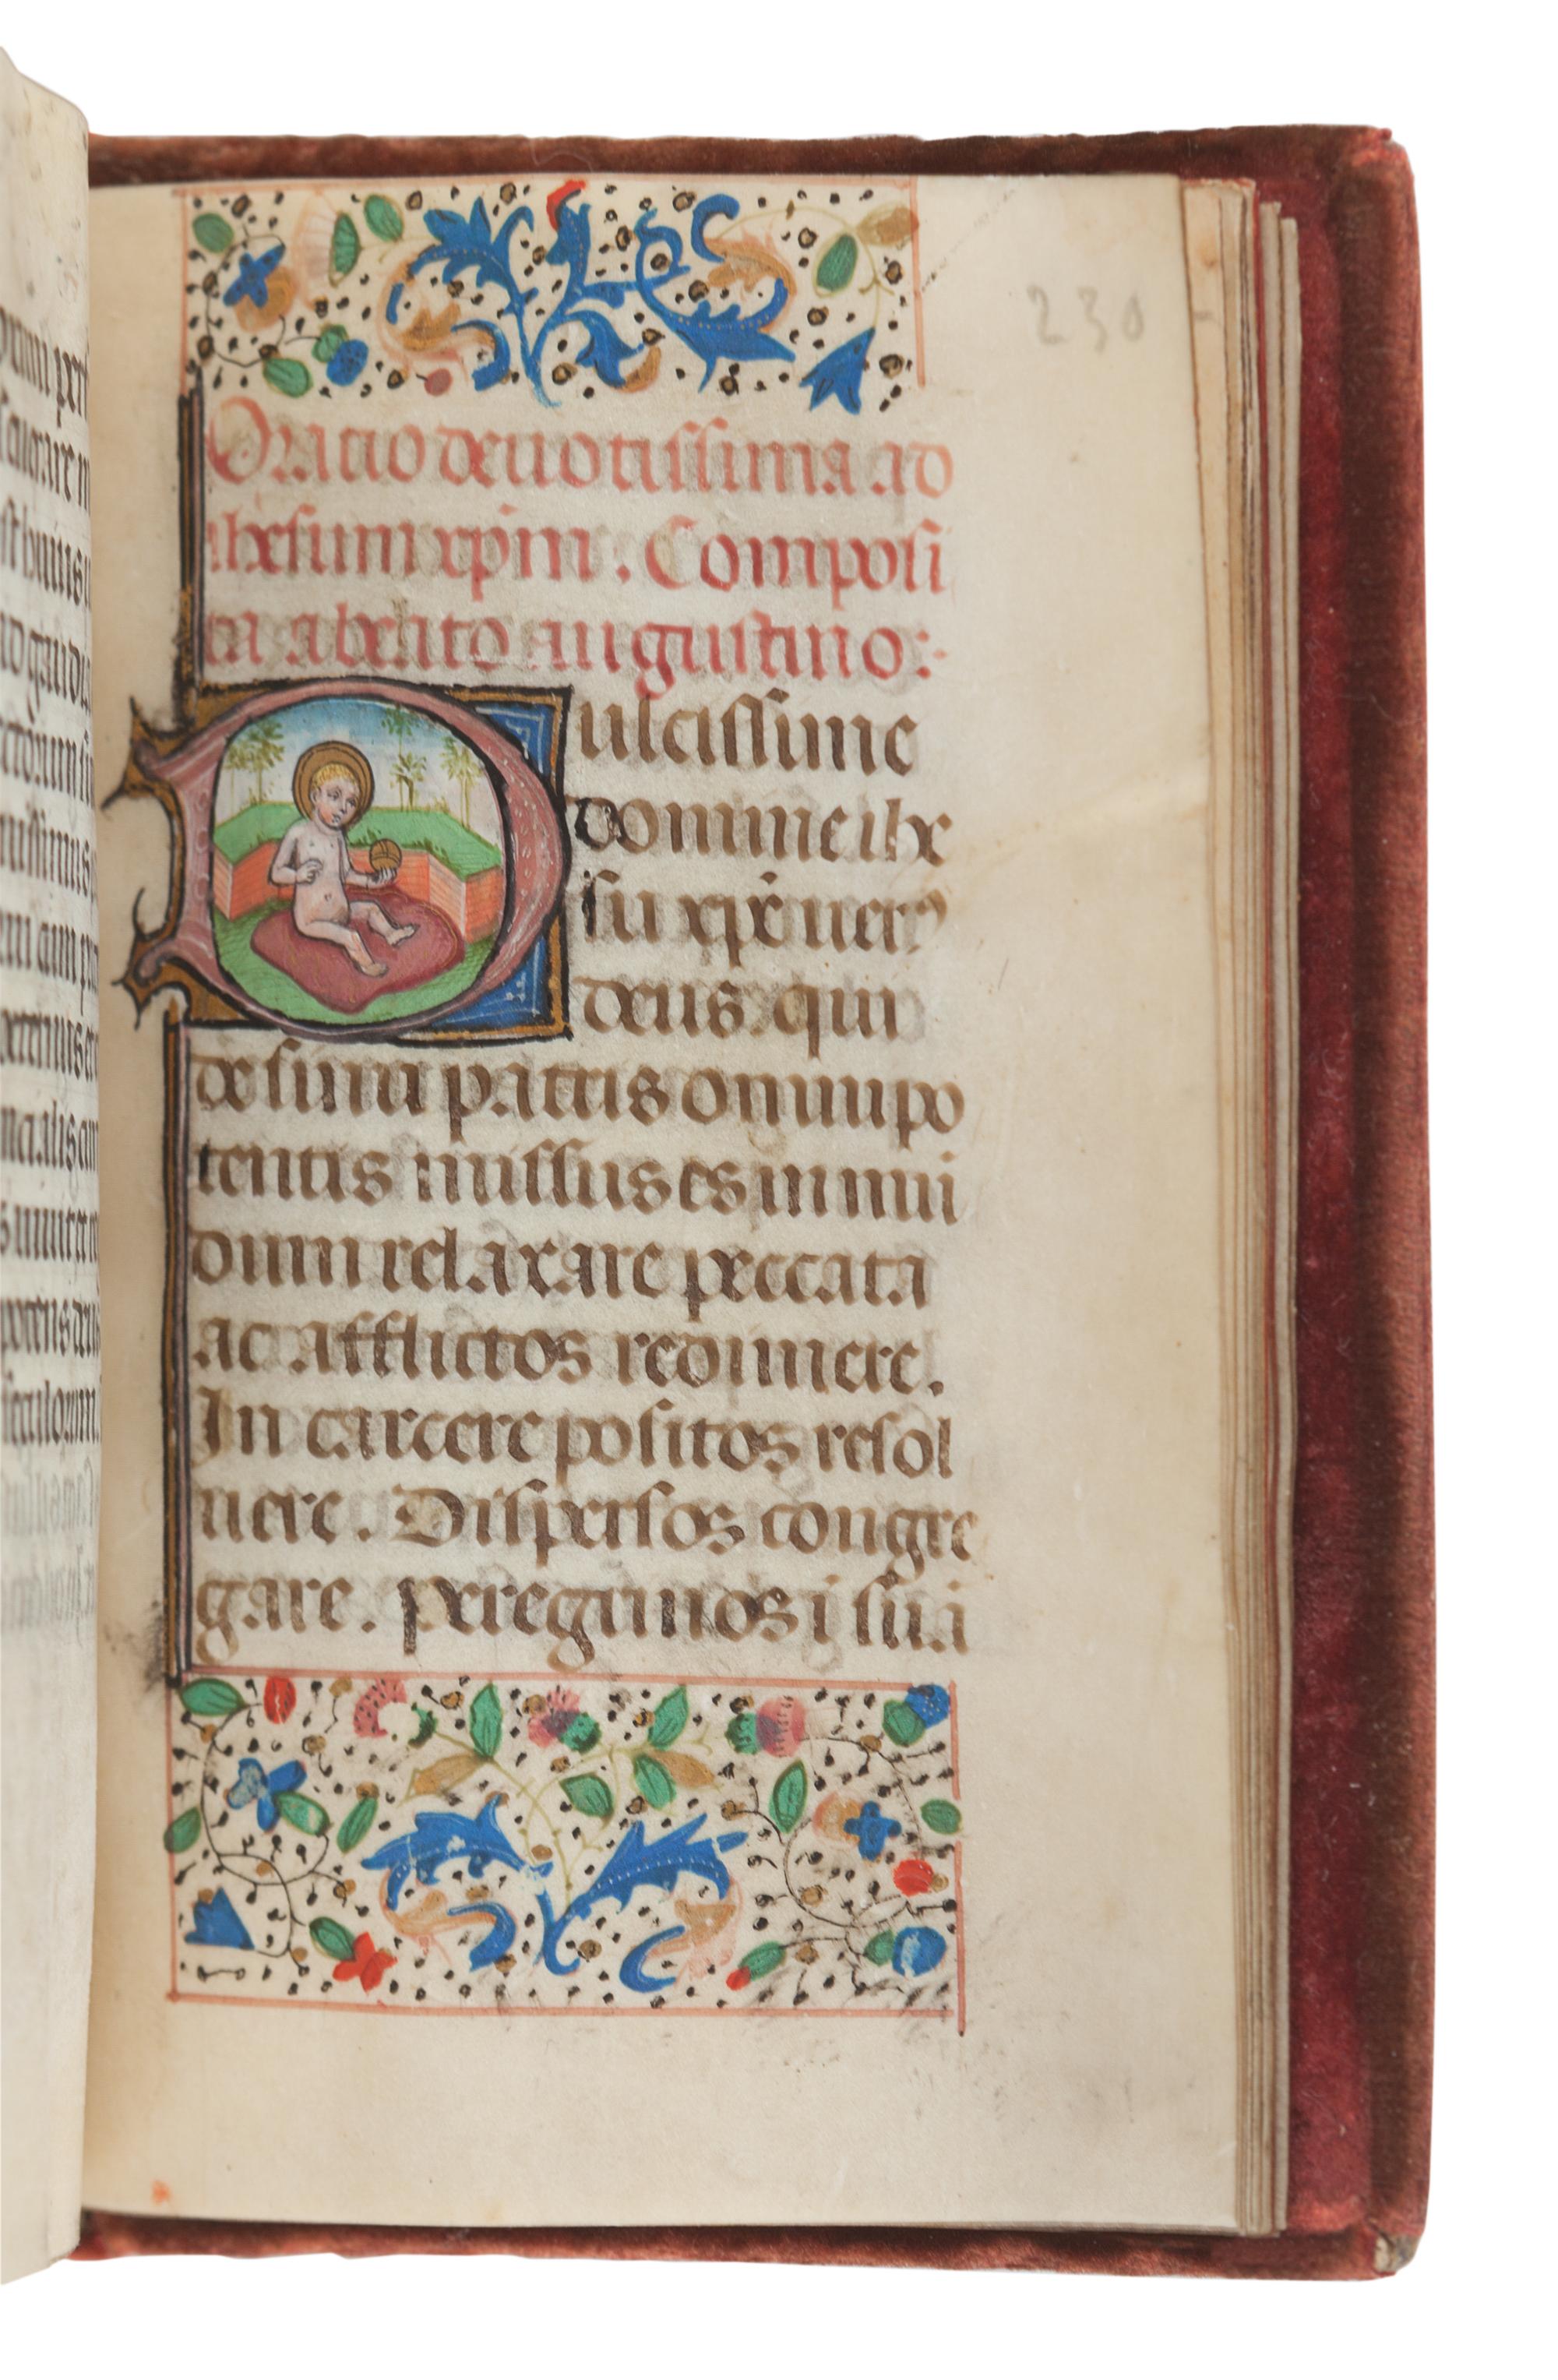 230
Oracio deuotissima ad
ihesum xpm. Composi
ta a beato augustino:
Dulcissime
domine ihe
su xpe uerus
deus. qui
de sinu patris omnipo
tentis missus es in mū
dum relaxare peccata
ac afflictos redimere.
In carcere positos resol
uere. Dispersos congre
gare. peregrinos ī suā